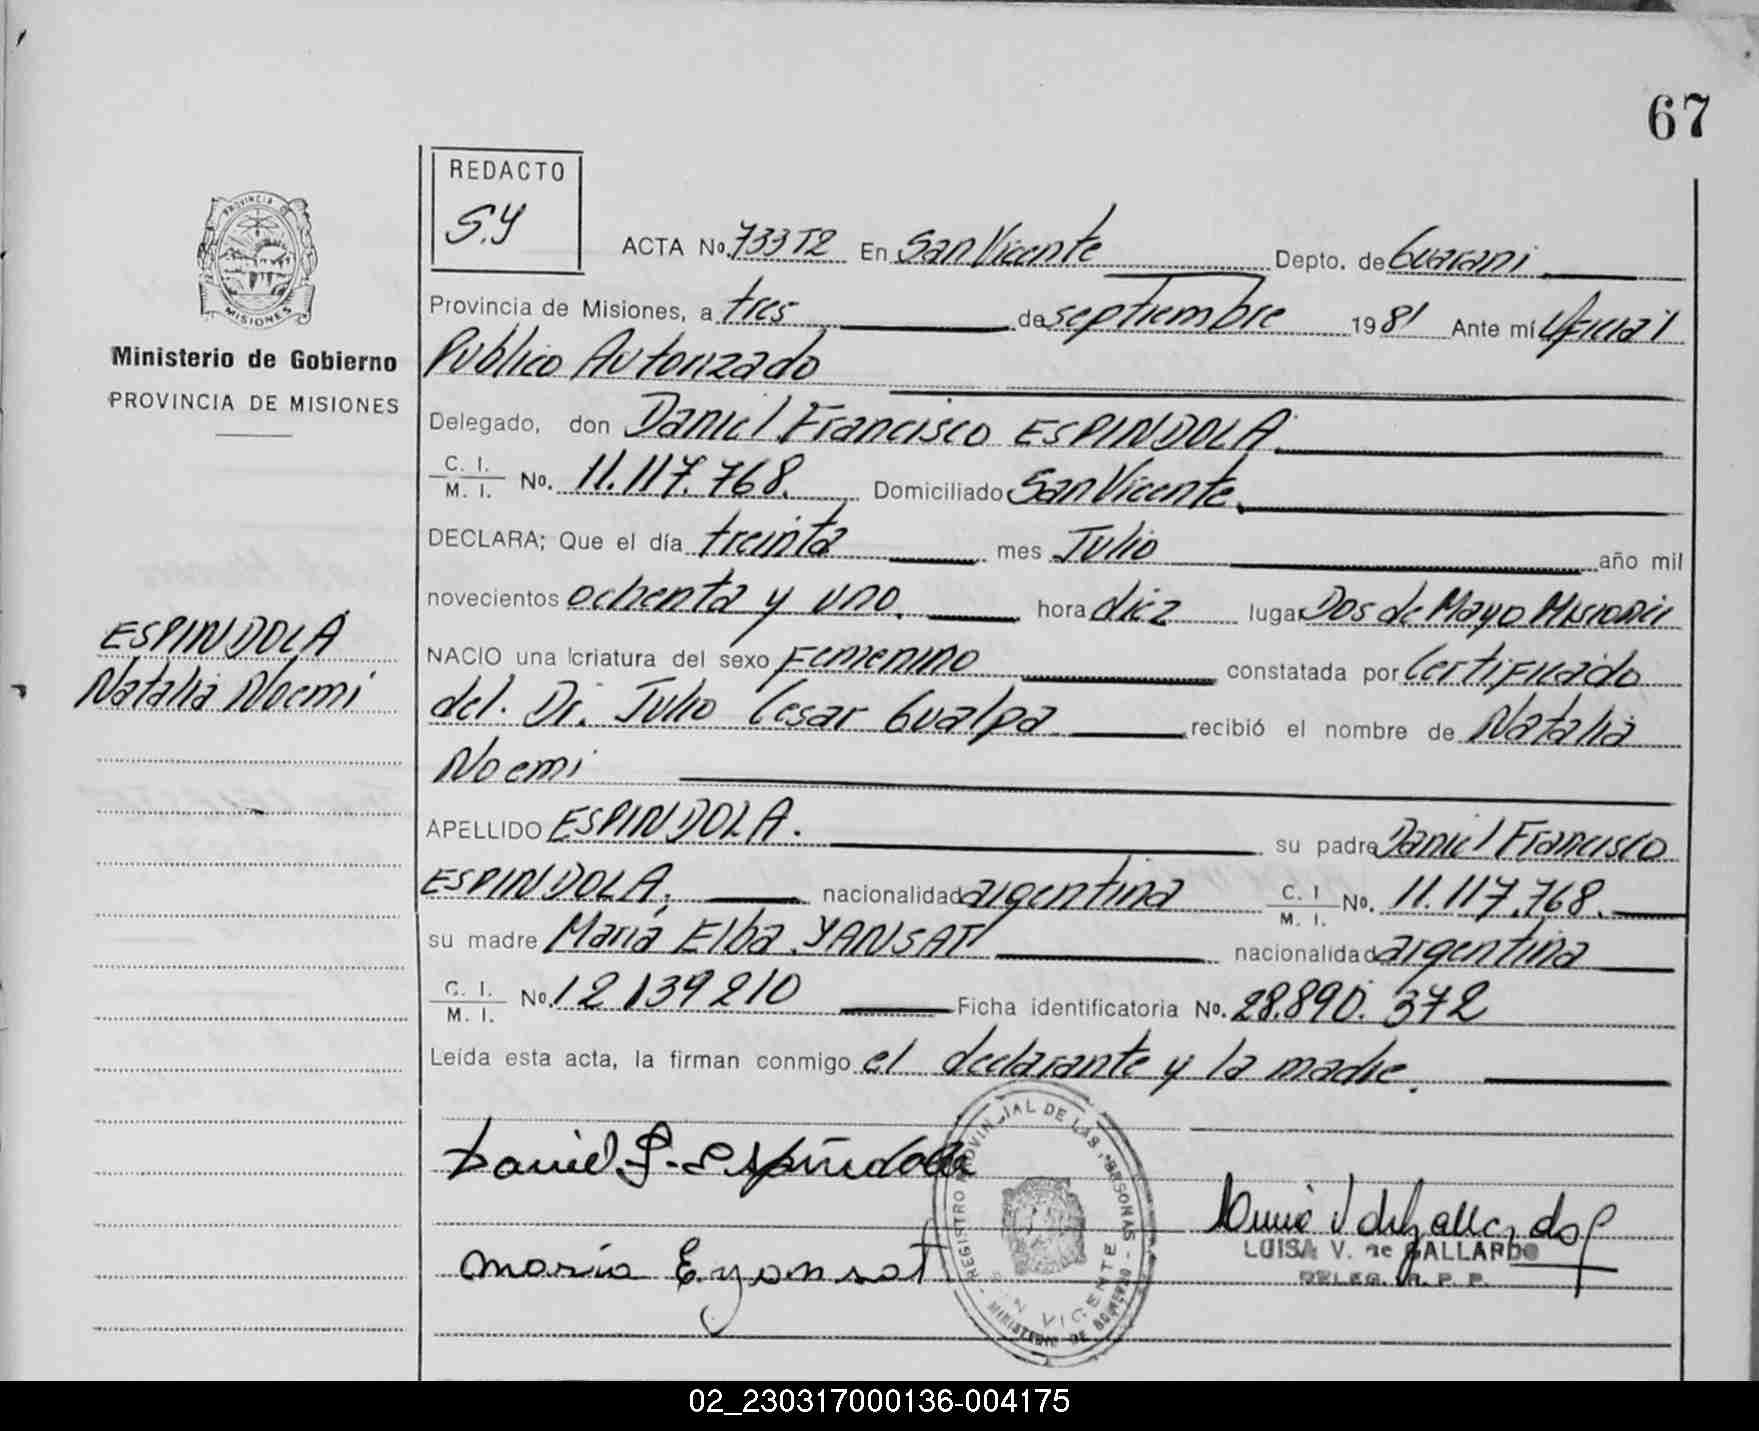 67
REDACTO
S.Y
ACTA No. 733 T2 En San Vicente Depto. de Guarani
Provincia de Misiones, a tres de septiembre 1981 Ante mí Oficial
Publico Autorizado
Delegado, don Daniel Francisco ESPINDOLA
C. I. / M. I. No. 11.117.768. Domiciliado San Vicente.
DECLARA; Que el día treinta mes Julio año mil
novecientos ochenta y uno. hora diez lugar Dos de Mayo Misiones
NACIO una criatura del sexo Femenino constatada por Certificado
del. Dr. Julio Cesar Gualpa recibió el nombre de Natalia
Noemi
APELLIDO ESPINDOLA. su padre Daniel Francisco
ESPINDOLA. nacionalidad argentina C. I / M. I. No. 11.117.768.
su madre Maria Elba YANSAT nacionalidad argentina
C. I. / M. I. No. 12139210 Ficha identificatoria No. 28.890.372
Leída esta acta, la firman conmigo el declarante y la madre.
PROVINCIA DE
MISIONES
Ministerio de Gobierno
PROVINCIA DE MISIONES
ESPINDOLA
Natalia Noemi
Daniel F. Espíndola
Maria E yansat
REGISTRO PROVINCIAL DE LAS PERSONAS
SAN VICENTE
MINISTERIO DE GOBIERNO
LUISA V. de GALLARDO
DELEG. R. P. P.
02_230317000136-004175